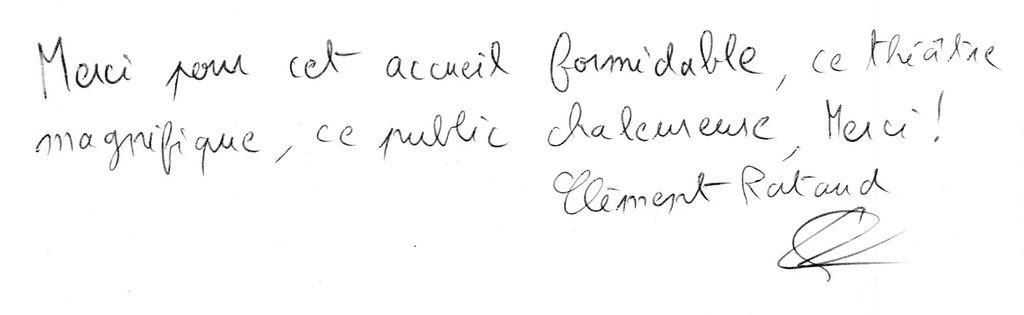 Merci pour cet accueil formidable, ce théâtre
magnifique, ce public chaleureuse, Merci !
Clément Rataud